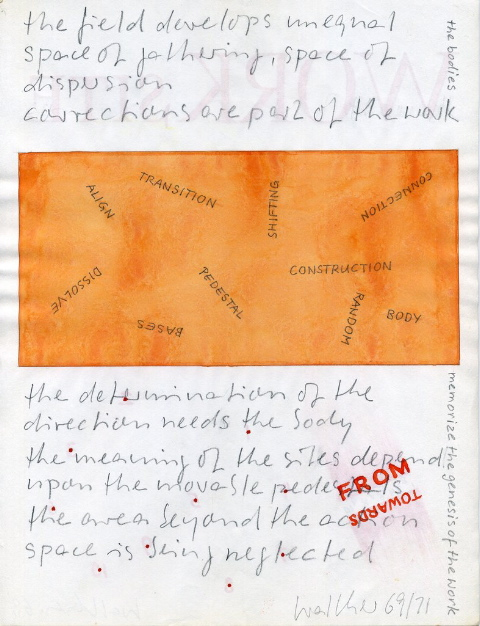 the field develops unequal
space of gathering, space of
dispersion
corrections are part of the work
the bodies
ALIGN
TRANSITION
SHIFTING
CONNECTION
DISSOLVE
BASES
PEDESTAL
CONSTRUCTION
RANDOM
BODY
the determination of the
direction needs the body
the meaning of the sites depend
upon the movable pedestals
the area beyond the action
space is being neglected
FROM
TOWARDS
memorize the genesis of the work
walther 69/71